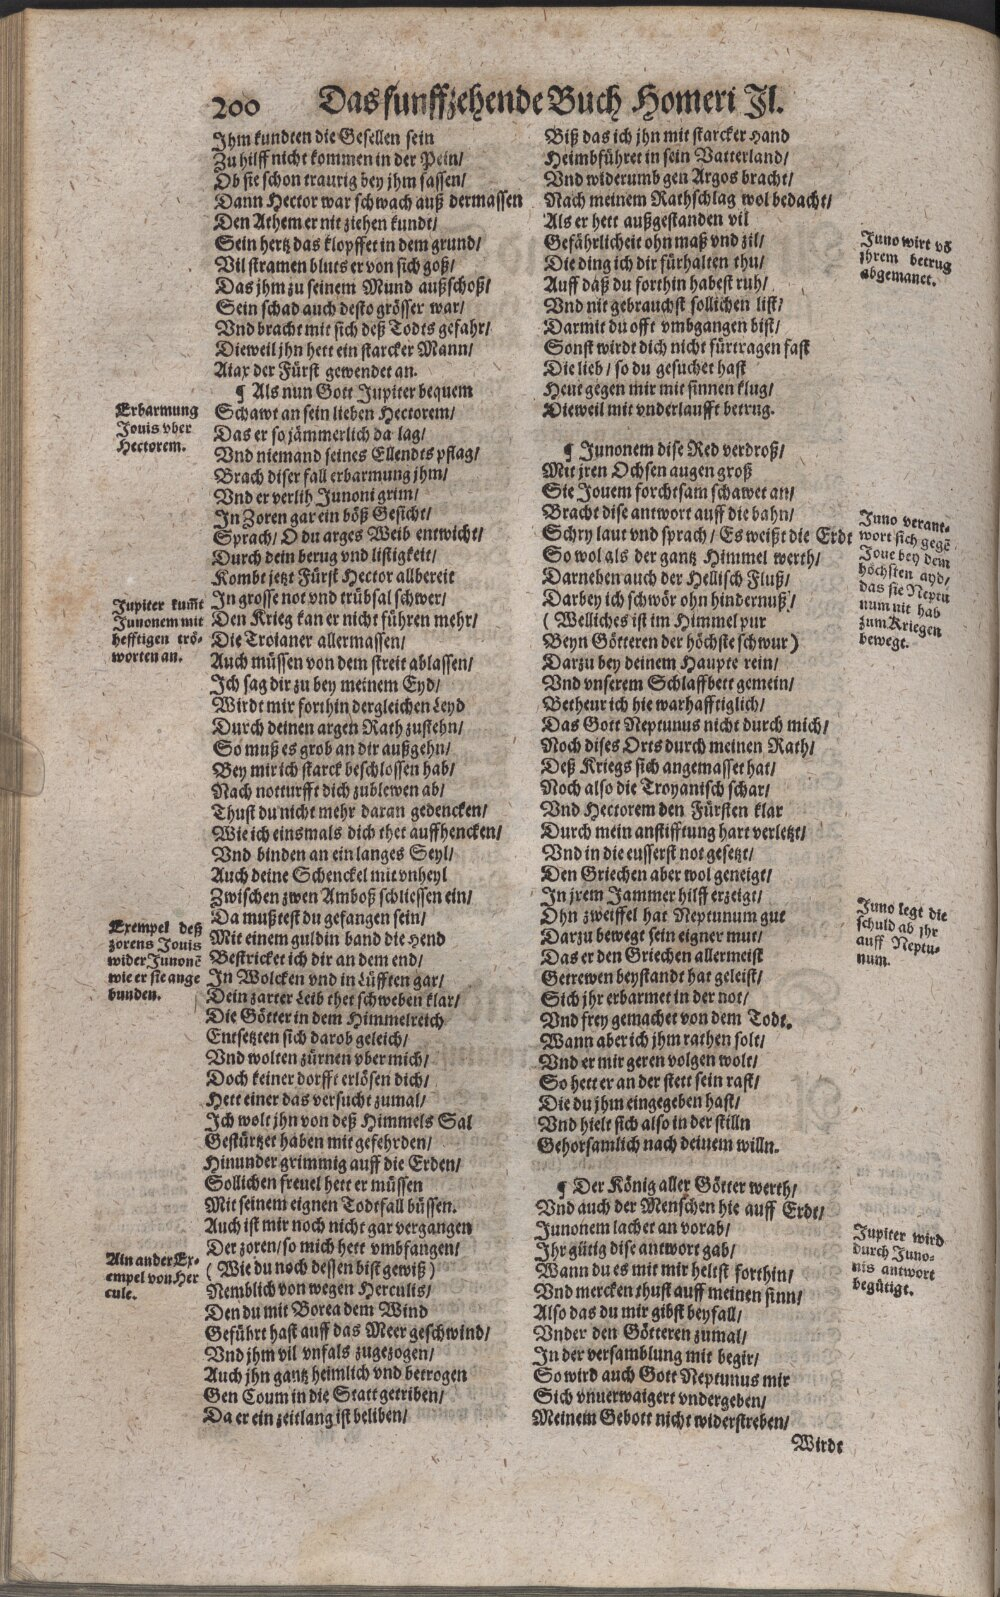 200 Das funffzehende Buch Homeri Jl.
Jhm kundten die Gesellen sein
Zu hilff nicht kommen in der Pein/
Ob sie schon traurig bey jhm sassen/
Dann Hector war schwach auß dermassen
Den Athem er nit ziehen kundt/
Sein hertz das klopffet in dem grund/
Vil stramen bluts er von sich goß/
Das jhm zu seinem Mund außschoß/
Sein schad auch desto grösser war/
Vnd bracht mit sich deß Todts gefahr/
Dieweil jhn hett ein starcker Mann/
Aiax der Fürst gewendet an.
¶ Als nun Gott Jupiter bequem
Schawt an sein lieben Hectorem/
Das er so jämmerlich da lag/
Vnd niemand seines Ellendts pflag/
Brach diser fall erbarmung jhm/
Vnd er verlih Junoni grim/
Jn Zoren gar ein böß Gesicht/
Sprach/ O du arges Weib entwicht/
Durch dein berug vnd listigkeit/
Kombt jetzt Fürst Hector allbereit
Jn grosse not vnd trübsal schwer/
Den Krieg kan er nicht führen mehr/
Die Troianer allermassen/
Auch müssen von dem streit ablassen/
Jch sag dir zu bey meinem Eyd/
Wirdt mir forthin dergleichen Leyd
Durch deinen argen Rath zustehn/
So muß es grob an dir außgehn/
Bey mir ich starck beschlossen hab/
Nach notturfft dich zublewen ab/
Thust du nicht mehr daran gedencken/
Wie ich einsmals dich thet auffhencken/
Vnd binden an ein langes Seyl/
Auch deine Schenckel mit vnheyl
Zwischen zwen Amboß schliessen ein/
Da mußtest du gefangen sein/
Mit einem guldin band die Hend
Bestricket ich dir an dem end/
Jn Wolcken vnd in Lüfften gar/
Dein zarter Leib thet schweben klar/
Die Götter in dem Himmelreich
Entsetzten sich darob geleich/
Vnd wolten zürnen vber mich/
Doch keiner dorfft erlösen dich/
Hett einer das versucht zumal/
Jch wolt jhn von deß Himmels Sal
Gestürtzet haben mit gefehrden/
Hinunder grimmig auff die Erden/
Sollichen freuel hett er müssen
Mit seinem eignen Todtfall büssen.
Auch ist mir noch nicht gar vergangen
Der zoren/ so mich hett vmbfangen/
( Wie du noch dessen bist gewiß )
Nemblich von wegen Herculis/
Den du mit Borea dem Wind
Geführt hast auff das Meer geschwind/
Vnd jhm vil vnfals zugezogen/
Auch jhn gantz heimlich vnd betrogen
Gen Coum in die Statt getriben/
Da er ein zeitlang ist beliben/
Erbarmung
Jouis vber
Hectorem.
Jupiter kum̃t
Junonem mit
hefftigen trö-
worten an.
Exempel deß
zorens Jouis
wider Junonē
wie er sie ange
bunden.
Ain ander Ex-
empel von Her
cule.
Biß das ich jhn mit starcker Hand
Heimbführet in sein Vatterland/
Vnd widerumb gen Argos bracht/
Nach meinem Rathschlag wol bedacht/
Als er hett außgestanden vil
Gefährlicheit ohn maß vnd zil/
Die ding ich dir fürhalten thu/
Auff daß du forthin habest ruh/
Vnd nit gebrauchst sollichen list/
Darmit du offt vmbgangen bist/
Sonst wirdt dich nicht fürtragen fast
Die lieb/ so du gesuchet hast
Heut gegen mir mit sinnen klug/
Dieweil mit vnderlaufft betrug.
¶ Junonem dise Red verdroß/
Mit jren Ochsen augen groß
Sie Jouem forchtsam schawet an/
Bracht dise antwort auff die bahn/
Schry laut vnd sprach/ Es weißt die Erdt
So wol als der gantz Himmel werth/
Darneben auch der Hellisch Fluß/
Darbey ich schwör ohn hindernuß/
( Welliches ist im Himmel pur
Beyn Götteren der höchste schwur )
Darzu bey deinem Haupte rein/
Vnd vnserem Schlaffbett gemein/
Betheur ich hie warhafftiglich/
Das Gott Neptunus nicht durch mich/
Noch dises Orts durch meinen Rath/
Deß Kriegs sich angemasset hat/
Noch also die Troyanisch schar/
Vnd Hectorem den Fürsten klar
Durch mein anstifftung hart verletzt/
Vnd in die eusserst not gesetzt/
Den Griechen aber wol geneigt/
Jn jrem Jammer hilff erzeigt/
Ohn zweiffel hat Neptunum gut
Darzu bewegt sein eigner mut/
Das er den Griechen allermeist
Getrewen beystandt hat geleist/
Sich jhr erbarmet in der not/
Vnd frey gemachet von dem Todt.
Wann aber ich jhm rathen solt/
Vnd er mir geren volgen wolt/
So hett er an der stett sein rast/
Die du jhm eingegeben hast/
Vnd hielt sich also in der stilln
Gehorsamlich nach deinem willn.
¶ Der König aller Götter werth/
Vnd auch der Menschen hie auff Erdt/
Junonem lachet an vorab/
Jhr gütig dise antwort gab/
Wann du es mit mir heltst forthin/
Vnd mercken thust auff meinen sinn/
Also das du mir gibst beyfall/
Vnder den Götteren zumal/
Jn der versamblung mit begir/
So wird auch Gott Neptunus mir
Sich vnuerwaigert vndergeben/
Meinem Gebott nicht widerstreben/
Wirdt
Juno wirt vō
jhrem betrug
abgemanet.
Juno verant-
wort sich gegē
Joue bey dem
höchsten ayd/
das sie Neptu
num nit hab
zum Kriegen
bewegt.
Juno legt die
schuld ab jhr
auff Neptu-
num.
Jupiter wird
durch Juno-
nis antwort
begütigt.